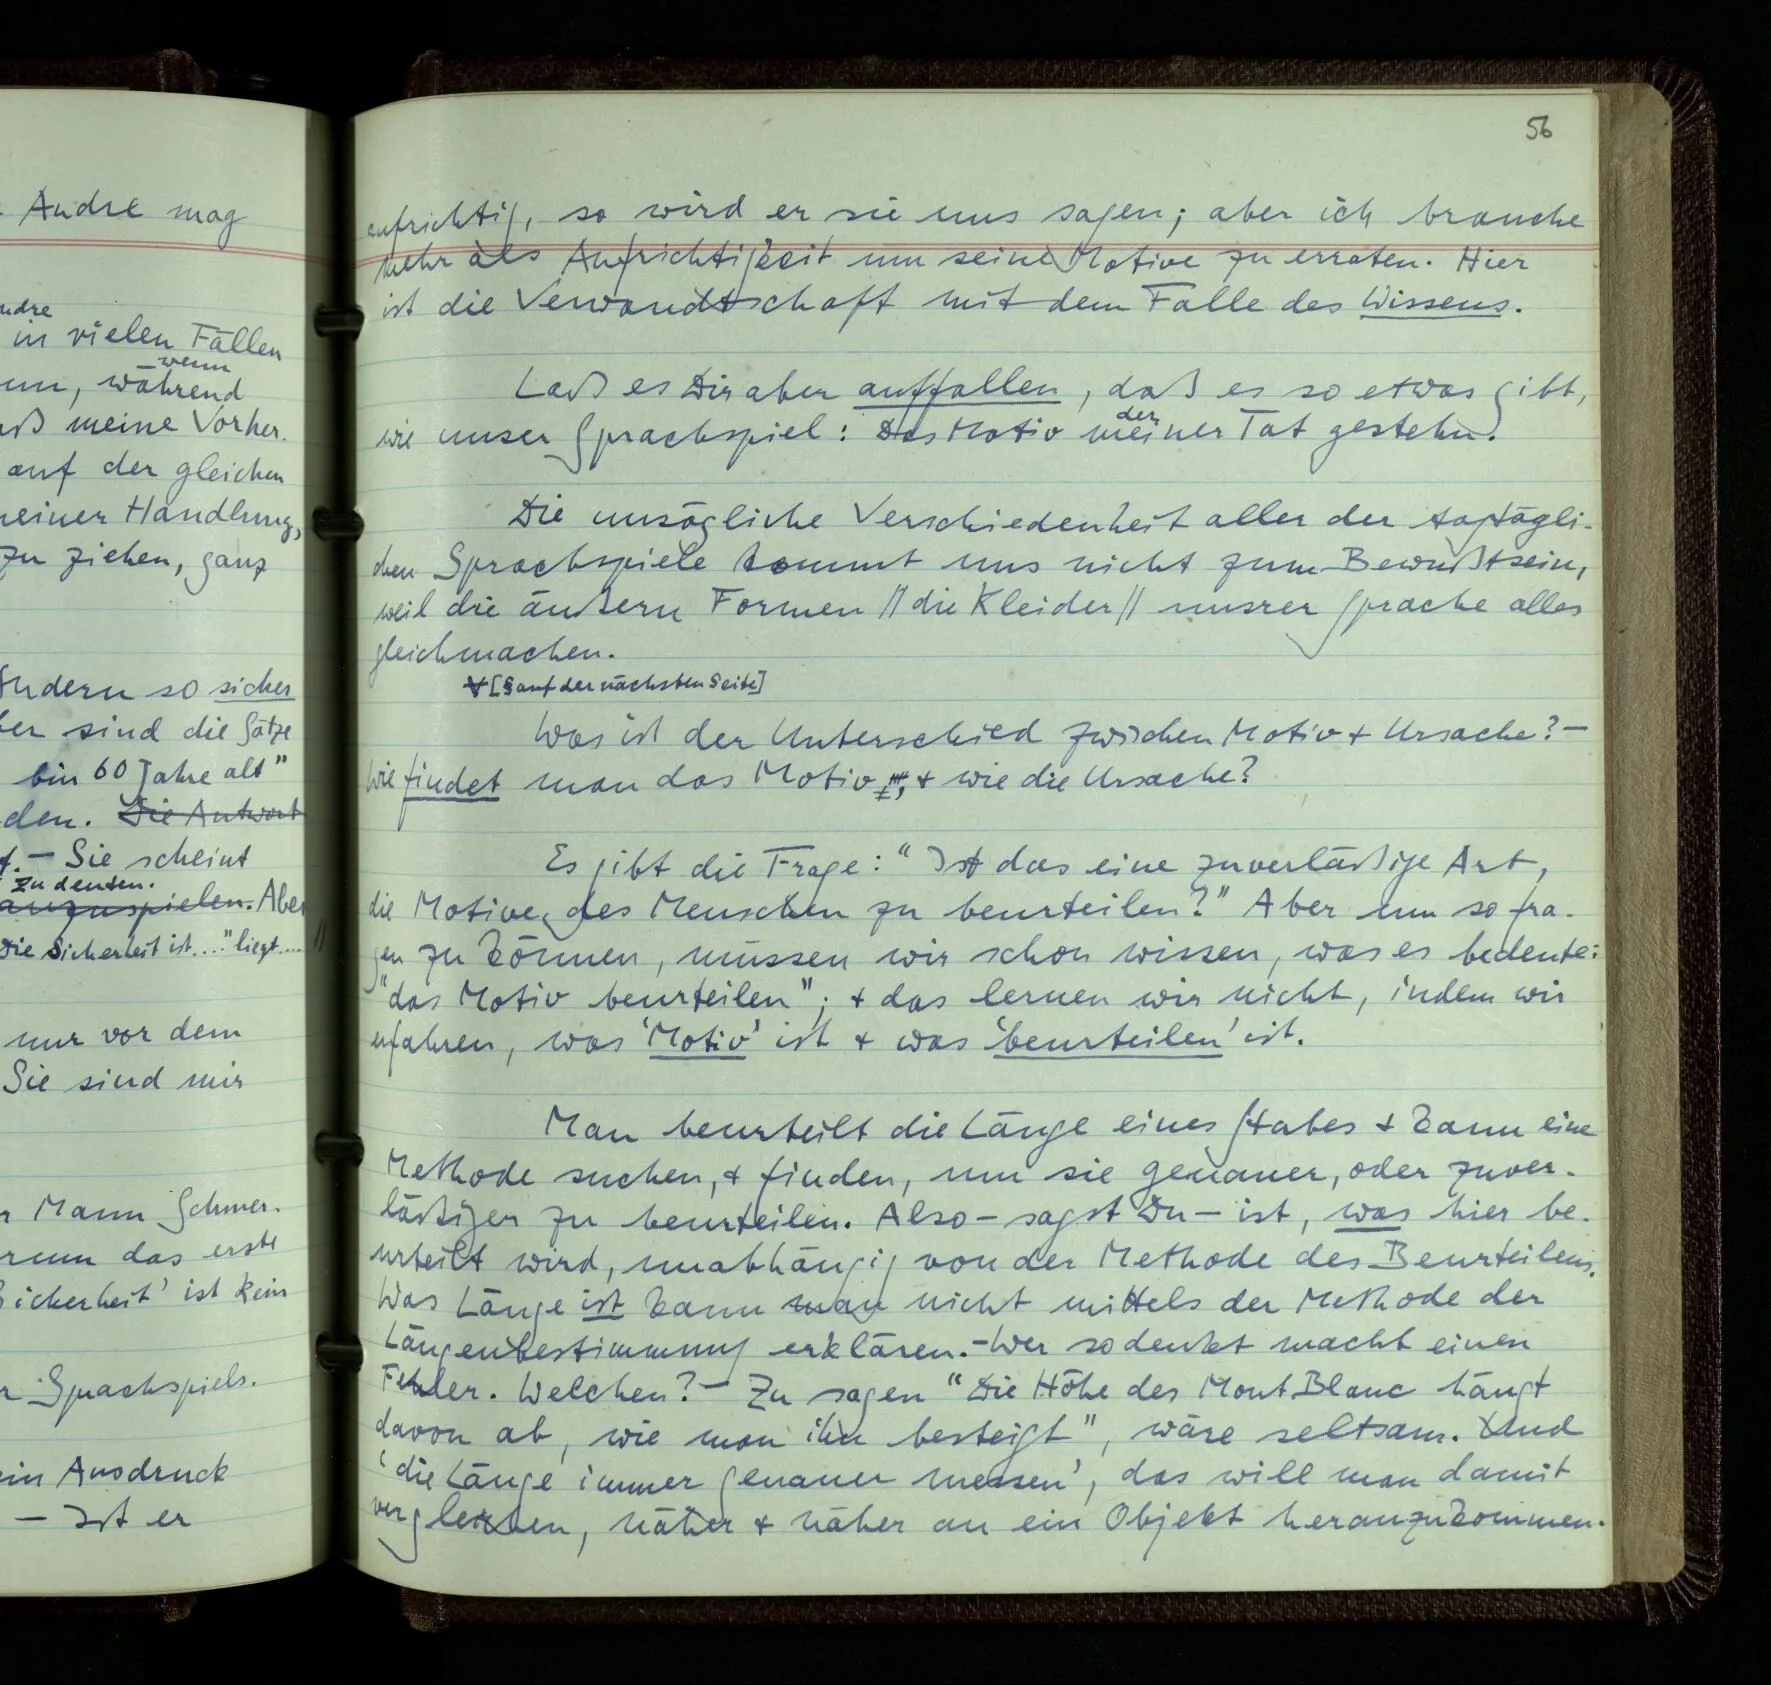 Andre mag
ndre
in vielen Fällen
wenn
nn, während
ß meine Vorher-
auf der gleichen
meiner Handlung,
zu ziehen, ganz
Andern so sicher
ber sind die Sätze
bin 60 Jahre alt"
den. Die Antwort
t. – Sie scheint
zu deuten.
anzuspielen. Aber
Die Sicherheit ist ...." liegt .... //
nur vor dem
Sie sind mir
r Mann Schmer-
rum das erste
Sicherheit' ist kein
r Sprachspiels.
ein Ausdruck
– Ist er
56
aufrichtig, so wird er sie uns sagen; aber ich brauche
mehr als Aufrichtigkeit um seine Motive zu erraten. Hier
ist die Verwandtschaft mit dem Falle des Wissens.
Laß es Dir aber auffallen, daß es so etwas gibt,
der
wie unser Sprachspiel: Das Motiv meiner Tat gestehn.
Die unsägliche Verschiedenheit aller der tagtägli-
chen Sprachspiele kommt uns nicht zum Bewußtsein,
weil die äußern Formen // die Kleider // unsrer Sprache alles
gleichmachen.
∀ [§ auf der nächsten Seite]
Was ist der Unterschied zwischen Motiv & Ursache? –
Wie findet man das Motiv, & wie die Ursache?
Es gibt die Frage: "Ist das eine zuverläßige Art,
die Motive des Menschen zu beurteilen?" Aber um so fra-
gen zu können, müssen wir schon wissen, was es bedeute:
"das Motiv beurteilen"; & das lernen wir nicht, indem wir
erfahren, was 'Motiv' ist & was 'beurteilen' ist.
Man beurteilt die Länge eines Stabes & kann eine
Methode suchen, & finden, um sie genauer, oder zuver-
läßiger zu beurteilen. Also – sagst Du – ist, was hier be-
urteilt wird, unabhängig von der Methode des Beurteilens.
Was Länge ist kann man nicht mittels der Methode der
Längenbestimmung erklären. – Wer so denkt macht einen
Fehler. Welchen? – Zu sagen "Die Höhe des Mont Blanc hängt
davon ab, wie man ihn besteigt", wäre seltsam. Und
'die Länge immer genauer messen', das will man damit
vergleichen, näher & näher an ein Objekt heranzukommen.